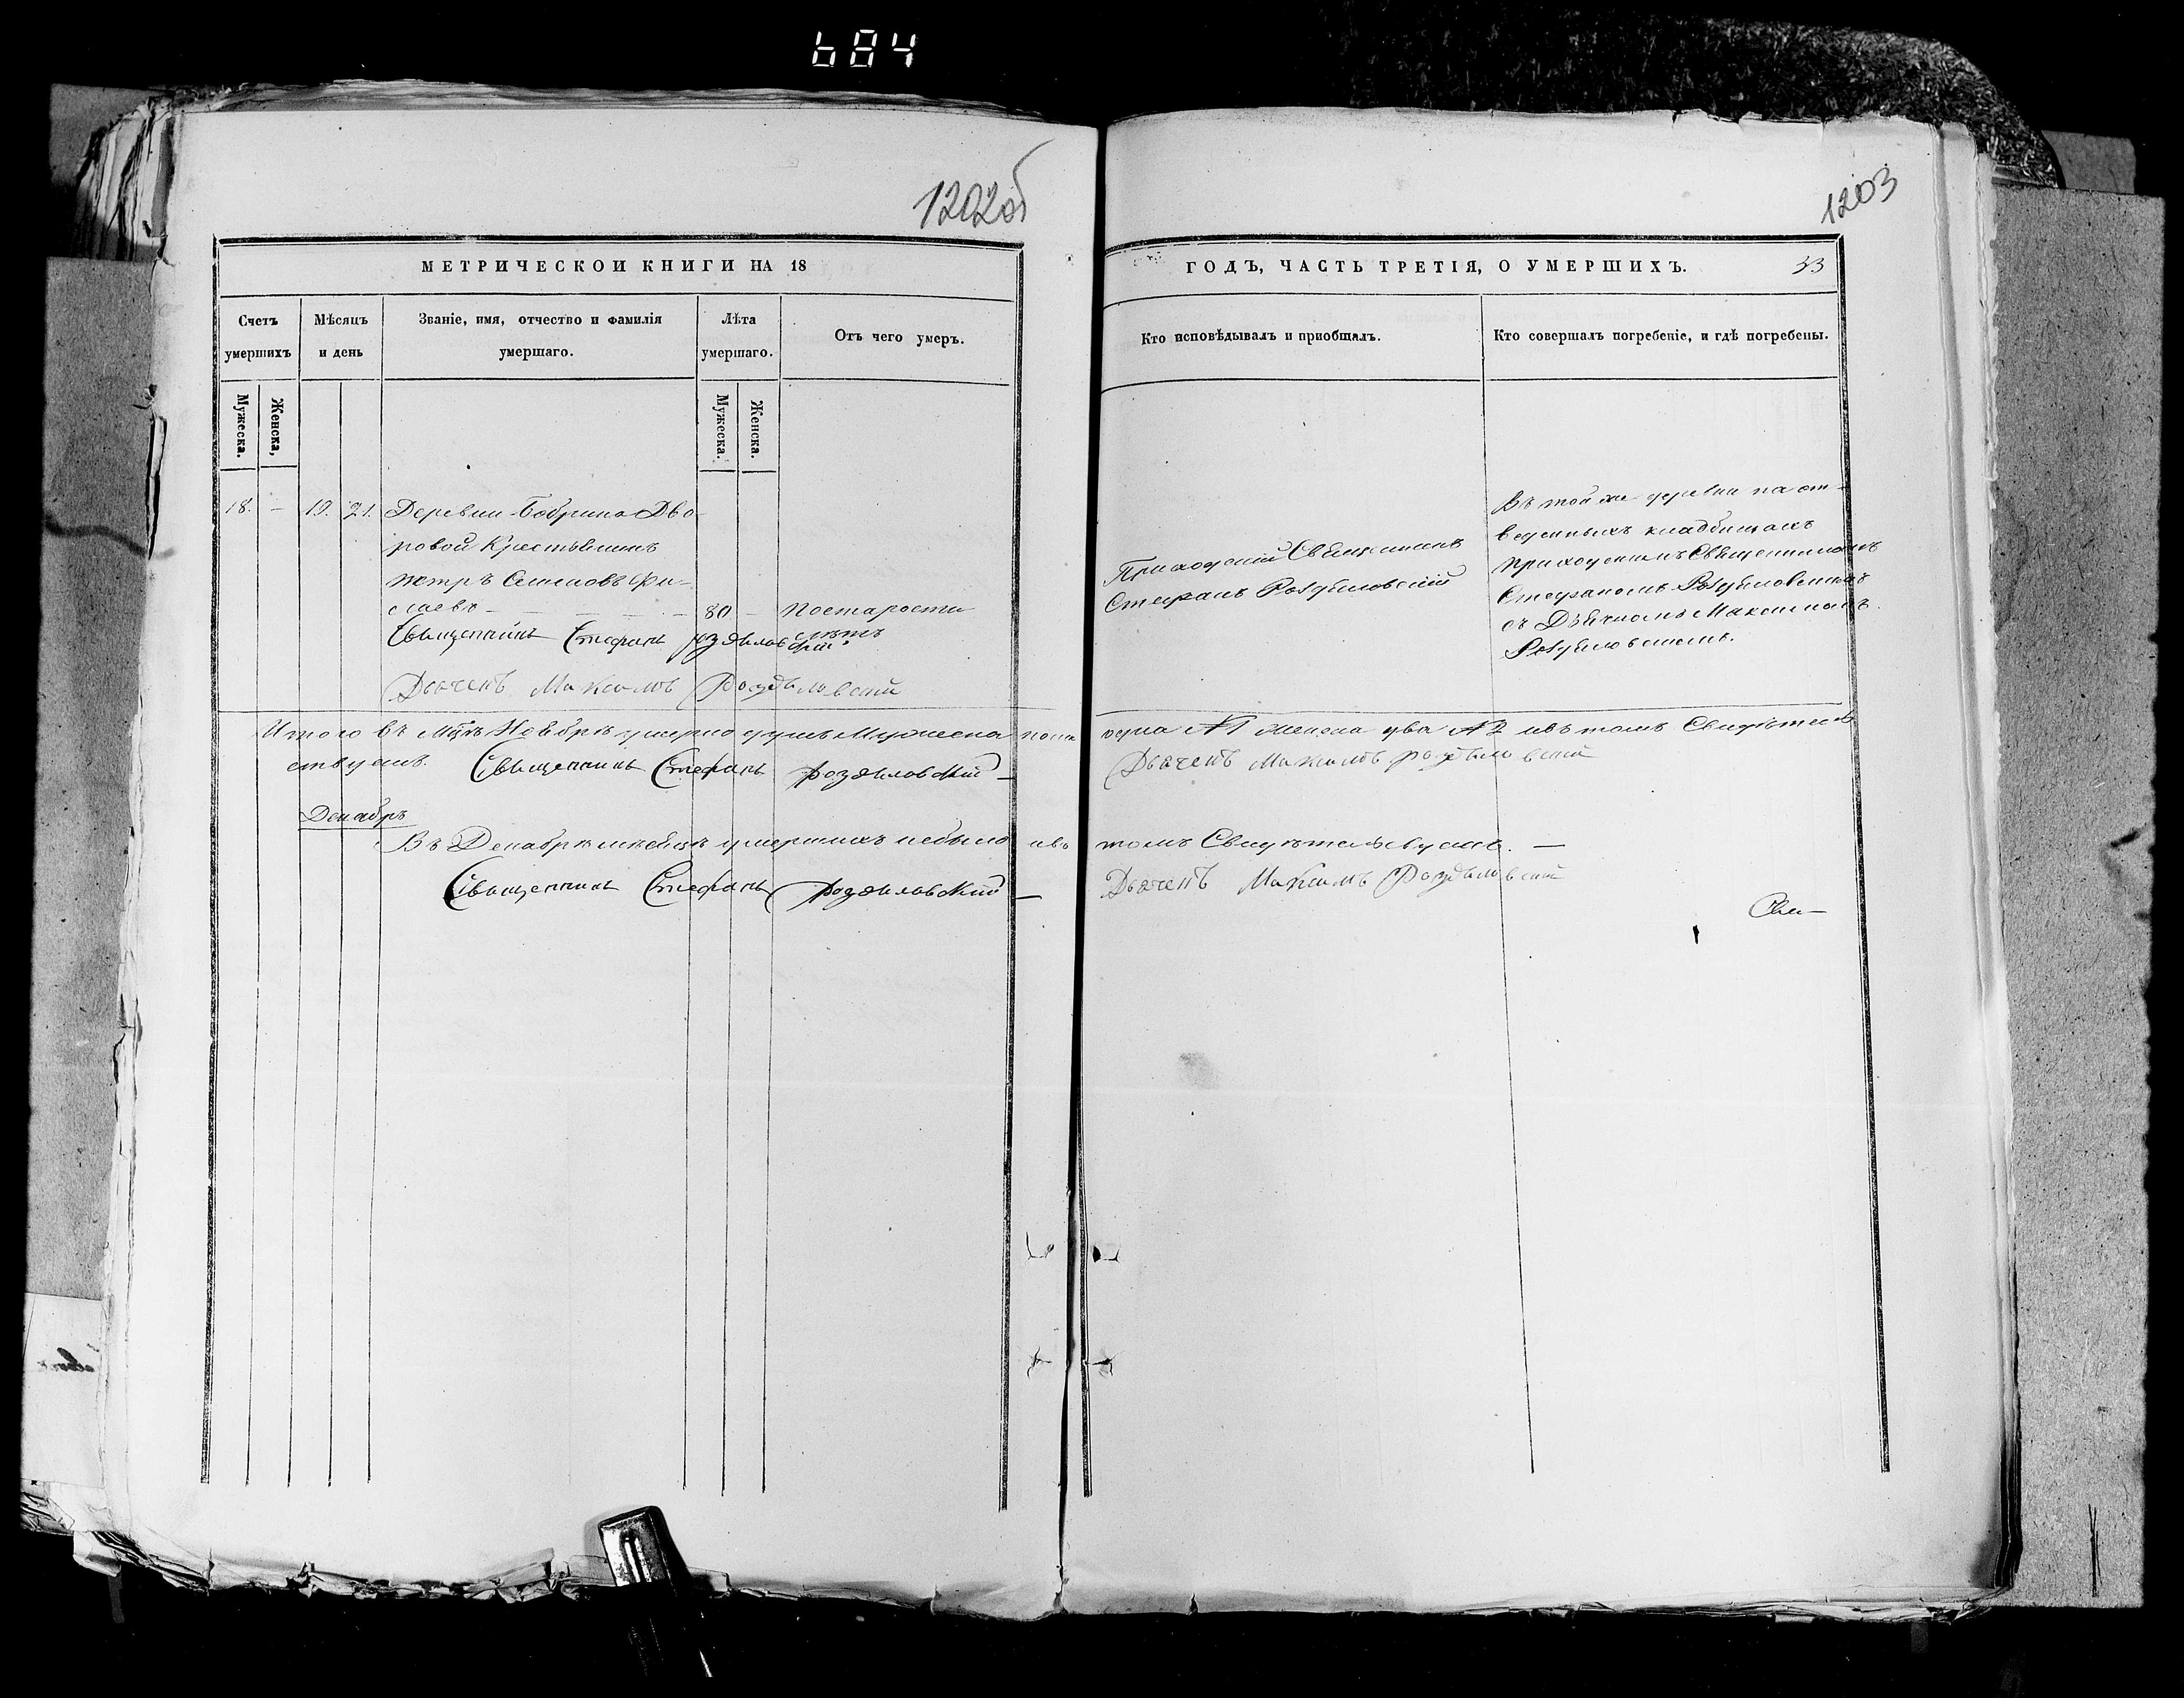 684
1202об
1203
МЕТРИЧЕСКОЙ КНИГИ НА 18
ГОДЪ, ЧАСТЬ ТРЕТІЯ, О УМЕРШИХЪ.
33
Счетъ умершихъ
Мѣсяцъ и день
Званіе, имя, отчество и фамилія умершаго.
Лѣта умершаго.
Отъ чего умеръ.
Кто исповѣдывалъ и пріобщалъ.
Кто совершалъ погребеніе, и гдѣ погребены.
Мужеска.
Женска,
Мужеска.
Женска.
18. – 19. 21. Деревни Бобрина Дво-
ровой Крестьянинъ
Петръ Семеновъ
80 – По старости
лѣтъ
Священникъ Стефанъ Роздиловскій
Дьячекъ Максимъ Роздиловскій
Приходскій Священникъ
Стефанъ Роздиловскій
Въ той же деревни на от-
веденныхъ кладбищахъ
приходскимъ Священникомъ
Стефаномъ Роздиловскимъ
съ Дьячкомъ Максимомъ
Роздиловскимъ.
Итого въ Мцѣ Ноябрѣ умерло душъ Мужеска пола одна №1 женска два №2 въ томъ Свидѣтель
ствуемъ. Священникъ Стефанъ Роздиловскій –
Дьячекъ Максимъ Роздиловскій
Декабрь
Въ Декабрѣ мѣсяцѣ умершихъ небыло въ томъ Свидѣтельствуемъ. –
Священникъ Стефанъ Роздиловскій –
Дьячекъ Максимъ Роздиловскій